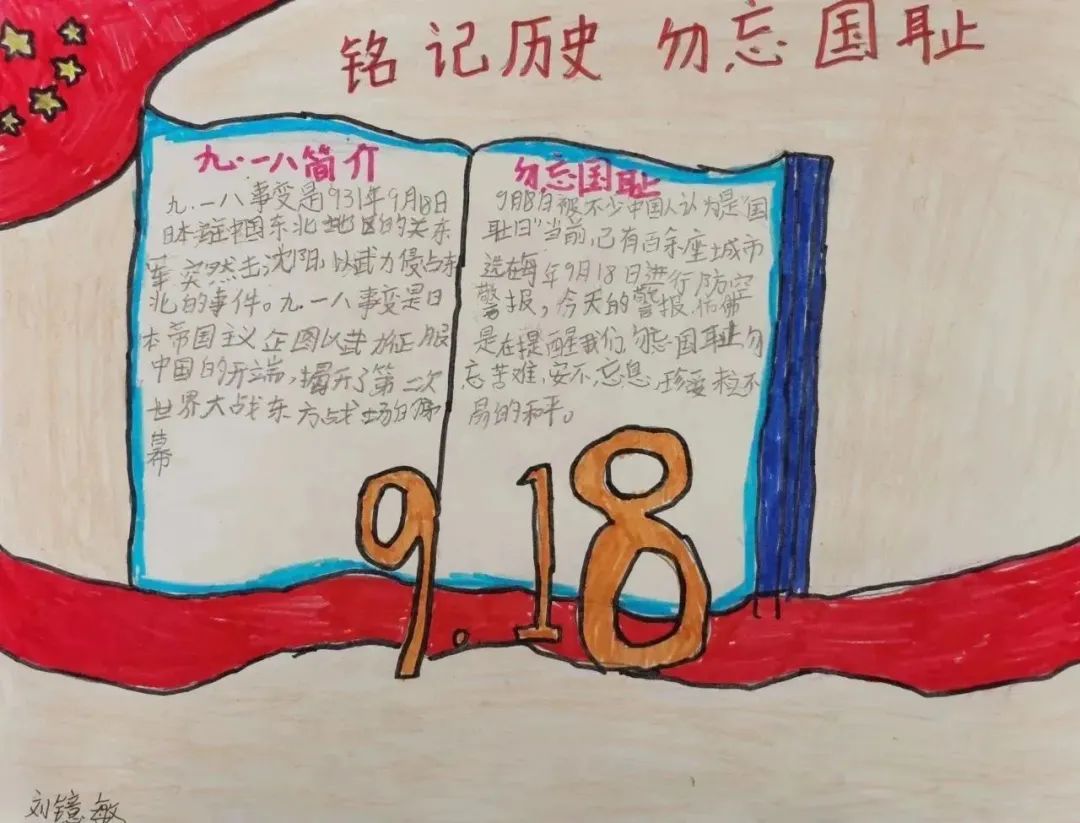 铭记历史 勿忘国耻
九·一八简介
九.一八事变是931年9月18日
日本驻中国东北地区的关东
军突然击沈阳,以武力侵占东
北的事件。九.一八事变是日
本帝国主义企图以武力征服
中国的开端,揭开了第二次
世界大战东方战场的序
幕
勿忘国耻
9月18日被不少中国人认为是"国
耻日"当前,已有百余座城市
选在每年9月18日进行防空
警报,今天的警报,仿佛
是在提醒我们勿忘国耻勿
忘苦难,安不忘息,珍爱来不
易的和平。
9.18
刘镱敏